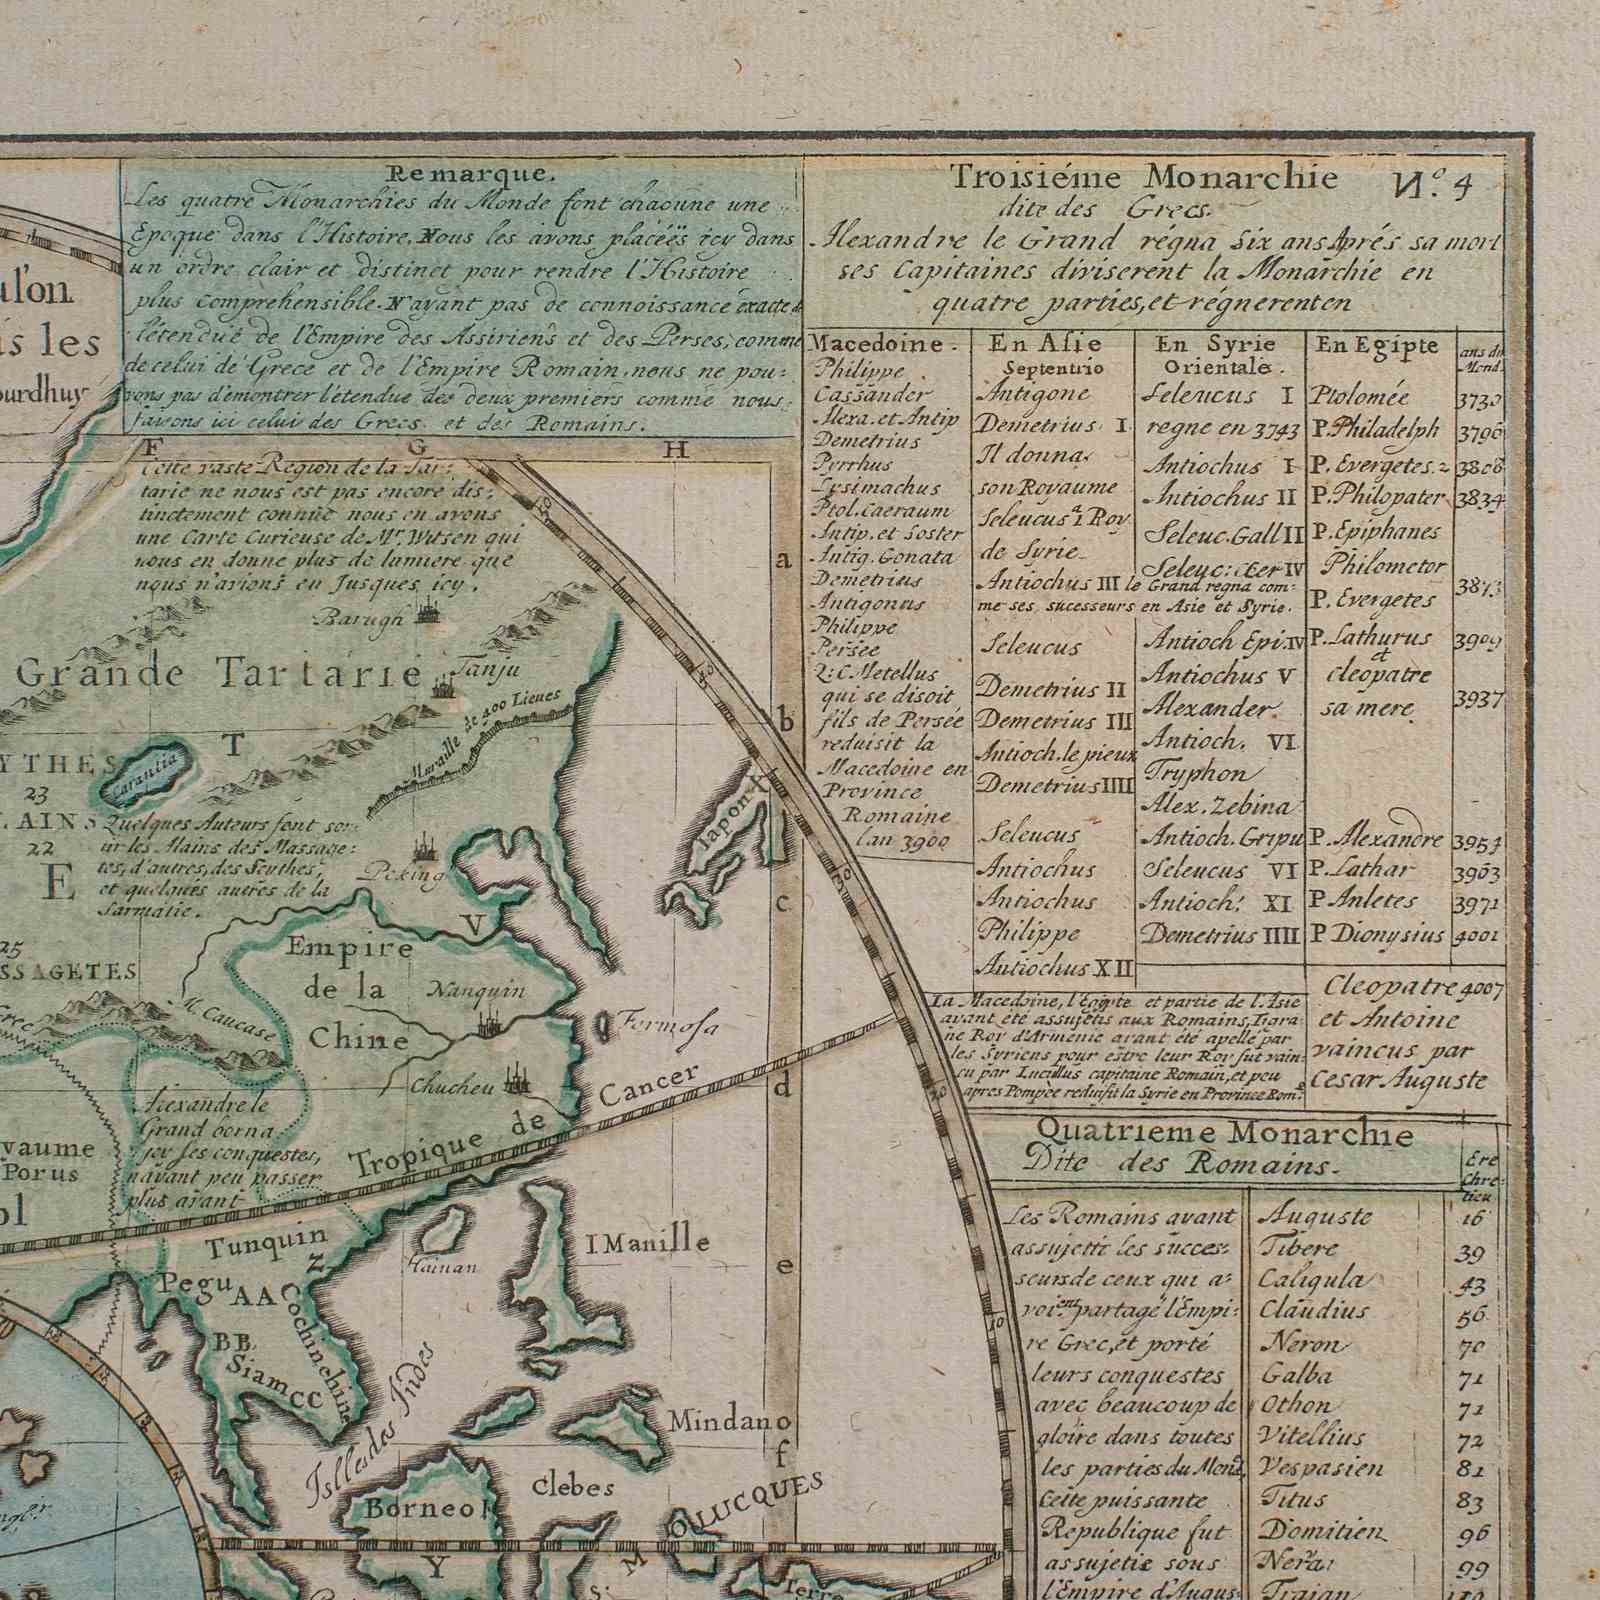 Remarque.
Les quatre Monarchies du Monde font chacune une
Epoque dans l'Histoire. Nous les avons placéës icy dans
un ordre clair et distinct pour rendre l'Histoire
plus comprehensible. N'ayant pas de connoissance exacte d
l'étendue de l'Empire des Assiriens et des Perses, comme
de celui de Grece et de l'Empire Romain, nous ne pou:
vons pas d'emontrer l'étendue des deux premiers comme nous
faisons ici celui des Grecs et des Romains.
Troisiéme Monarchie
N.º 4
dite des Grecs.
Alexandre le Grand régna Six ans Aprés sa mort
ses Capitaines diviserent la Monarchie en
quatre parties, et régnerent en
Macedoine.
Philippe
Cassander
Alexa. et Antip
Demetrius
Pyrrhus
Lysimachus
Ptol. Caeraum
Antip. et Soster
Antig. Gonata
Demetrius
Antigonus
Philippe
Persée
Q: C. Metellus
qui se disoit
fils de Persée
reduisit la
Macedoine en
Province
Romaine
lan 3900
En Asie
Septentrio
Antigone
Demetrius I
Il donna
son Royaume
Seleucus a 1 Roy
de Syrie
Antiochus III le Grand regna com:
me ses sucesseurs en Asie et Syrie.
Seleucus
Demetrius II
Demetrius III
Antioch. le pieux
Demetrius IIII
Seleucus
Antiochus
Antiochus
Philippe
Antiochus XII
En Syrie
Orientale.
Seleucus I
regne en 3743
Antiochus I
Antiochus II
Seleuc. Gall II
Seleuc: Cer IV
Antioch Epi. IV
Antiochus V
Alexander
Antioch. VI
Tryphon
Alex. Zebina
Antioch. Gripu
Seleucus VI
Antioch: XI
Demetrius IIII
En Egipte
Ptolomée
P. Philadelph
P. Evergetes. 2
P. Philopater
P. Epiphanes
Philometor
P. Evergetes
P. Lathurus
et
cleopatre
sa mere
P. Alexandre
P. Lathar
P Anletes
P Dionysius
Cleopatre 4007
et Antoine
vaincus par
Cesar Auguste
ans du
Mond.
3730
3796
3808
3834
3873
3909
3937
3954
3963
3971
4001
La Macedoine, l'Egypte et partie de l'Asie
ayant été assujetis aux Romains, Tigra
ne Roy d'Armenie ayant été apelle par
les Syriens pour estre leur Roy fut vain:
cu par Lucullus capitaine Romain, et peu
apres Pompée reduisit la Syrie en Province Rom.e
Quatrieme Monarchie
Dite des Romains.
Ere
Chre:
tien
Les Romains ayant
assujetti les succes:
seurs de ceux qui a:
voient partagé l'Empi:
re Grec, et porté
leurs conquestes
avec beaucoup de
gloire dans toutes
les parties du Mond,
Cette puissante
Republique fut
assujetie sous
l'Empire d'Augus
Auguste 16
Tibere 39
Caligula 43
Claudius 56
Neron 70
Galba 71
Othon 71
Vitellius 72
Vespasien 81
Titus 83
Domitien 96
Nerva 99
Trajan
ulon
is les
ourdhuy
F G H
Cette vaste Region de la Tar:
tarie ne nous est pas encore dis:
tinctement connuë nous en avons
une Carte Curieuse de Mr. Witsen qui
nous en donne plus de lumiere que
nous n'avions eu Jusques icy.
Barugh
Grande Tartarie
Tanju
Muraille de 400 Lieues
T
YTHES
Carantia
23
LAINS
22
Quelques Auteurs font sor:
tir les Alains des Massage:
tes, d'autres, des Scythes,
et quelques autres de la
Sarmatie.
E
Peking
V
25
SSAGETES
M. Caucase
Empire
de la
Chine
Nanquin
Chucheu
Formosa
Iapon X
a
b
c
d
e
f
Alexandre le
Grand borna
icy ses conquestes,
n'ayant peu passer
plus avant
yaume
Porus
ol
Tropique de Cancer
Tunquin
Z
Hainan
I Manille
Pegu
AA
BB
Siam
CC
Cochinchine
Isles des Indes
Mindano
Clebes
Borneo
MOLUCQUES
Y
Terre